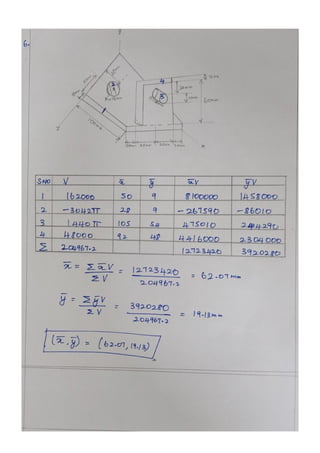 6.
S.NO V x̄ ȳ x̄V ȳV
1 162000 50 9 8100000 1458000
2 -3042π 28 9 -267590 -86010
3 1440π 105 54 475010 244290
4 48000 92 48 4416000 2304000
Σ 204967.2 12723420 3920280
x̄ = Σx̄V / ΣV = 12723420 / 204967.2 = 62.07mm
ȳ = ΣȳV / ΣV = 3920280 / 204967.2 = 19.13mm
(x̄, ȳ) = (62.07, 19.13)